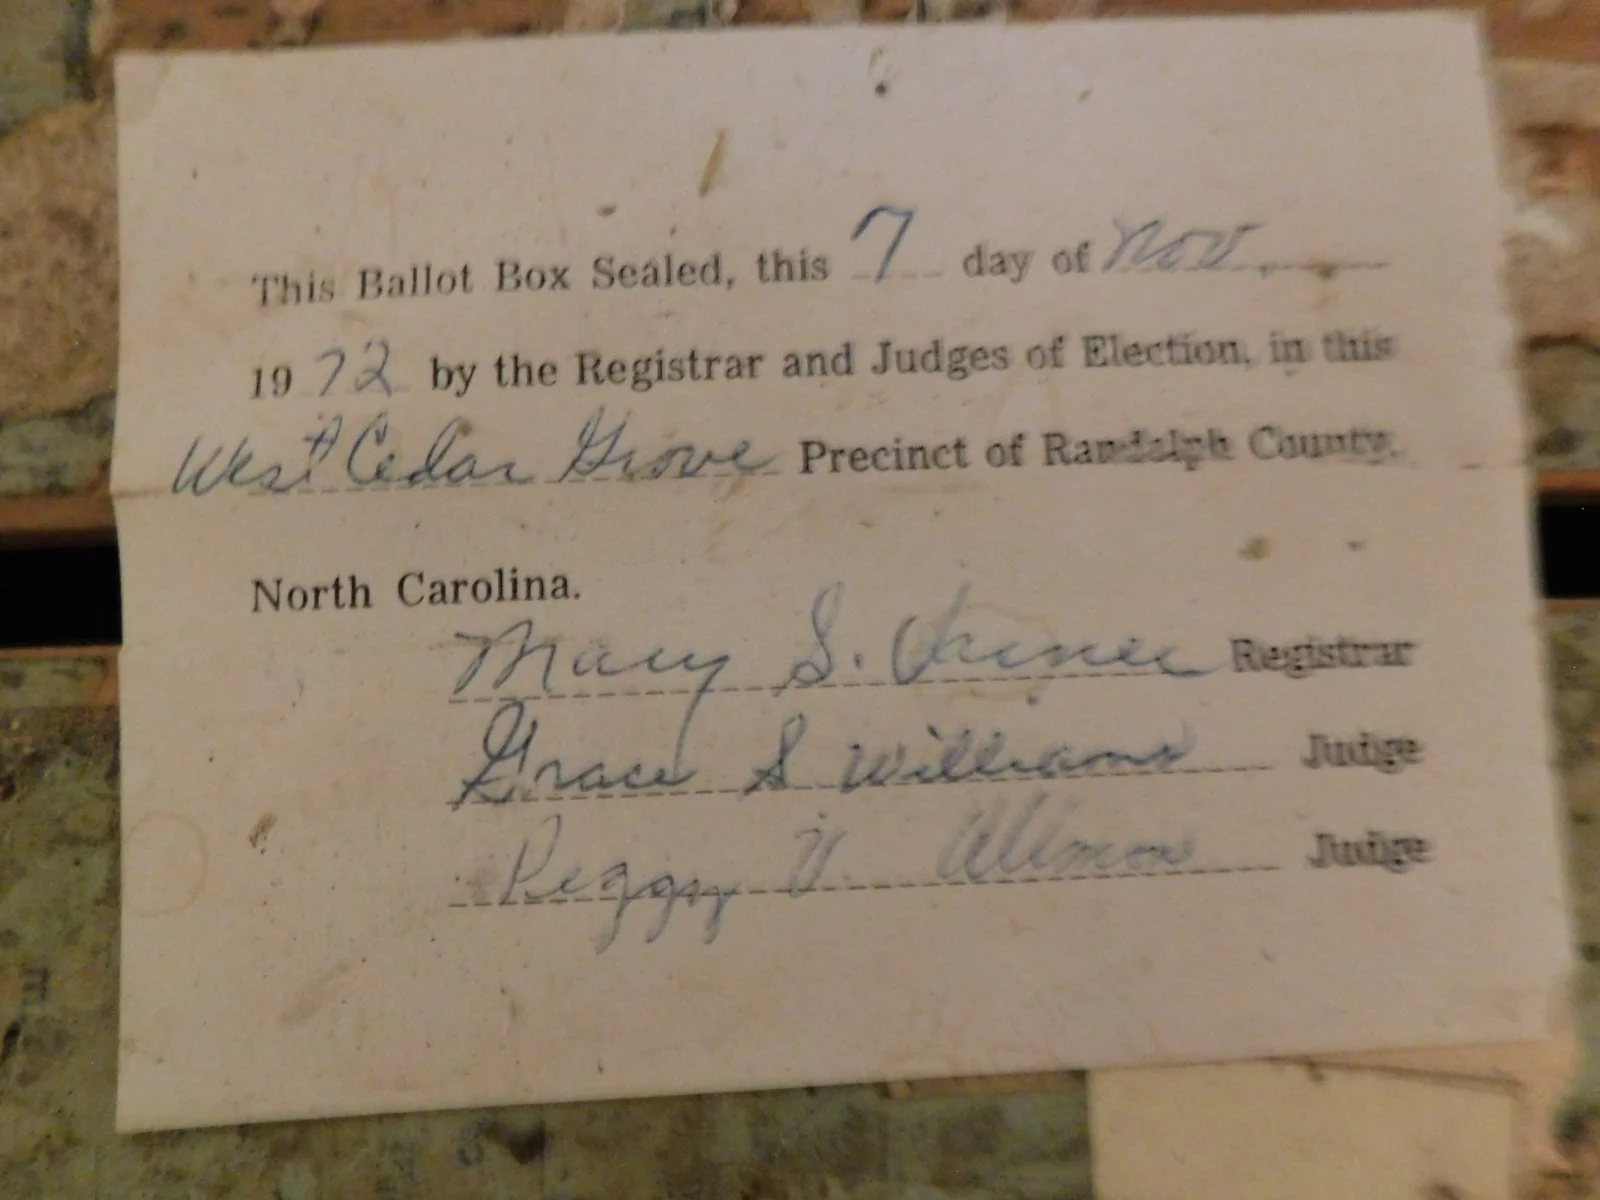 This Ballot Box Sealed, this 7 day of Nov
1972 by the Registrar and Judges of Election, in this
West Cedar Grove Precinct of Randolph County.
North Carolina.
Mary S. Registrar
Grace S Williams Judge
Peggy V. Judge